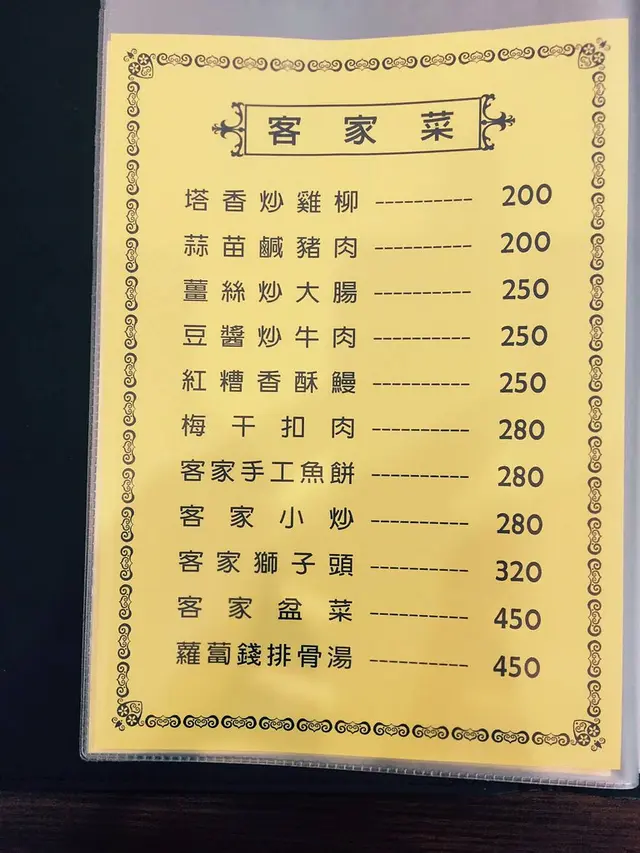 客家菜
塔香炒雞柳 ---------- 200
蒜苗鹹豬肉 ---------- 200
薑絲炒大腸 ---------- 250
豆醬炒牛肉 ---------- 250
紅糟香酥鰻 ---------- 250
梅干扣肉 ---------- 280
客家手工魚餅 ---------- 280
客家小炒 ---------- 280
客家獅子頭 ---------- 320
客家盆菜 ---------- 450
蘿蔔錢排骨湯 ---------- 450